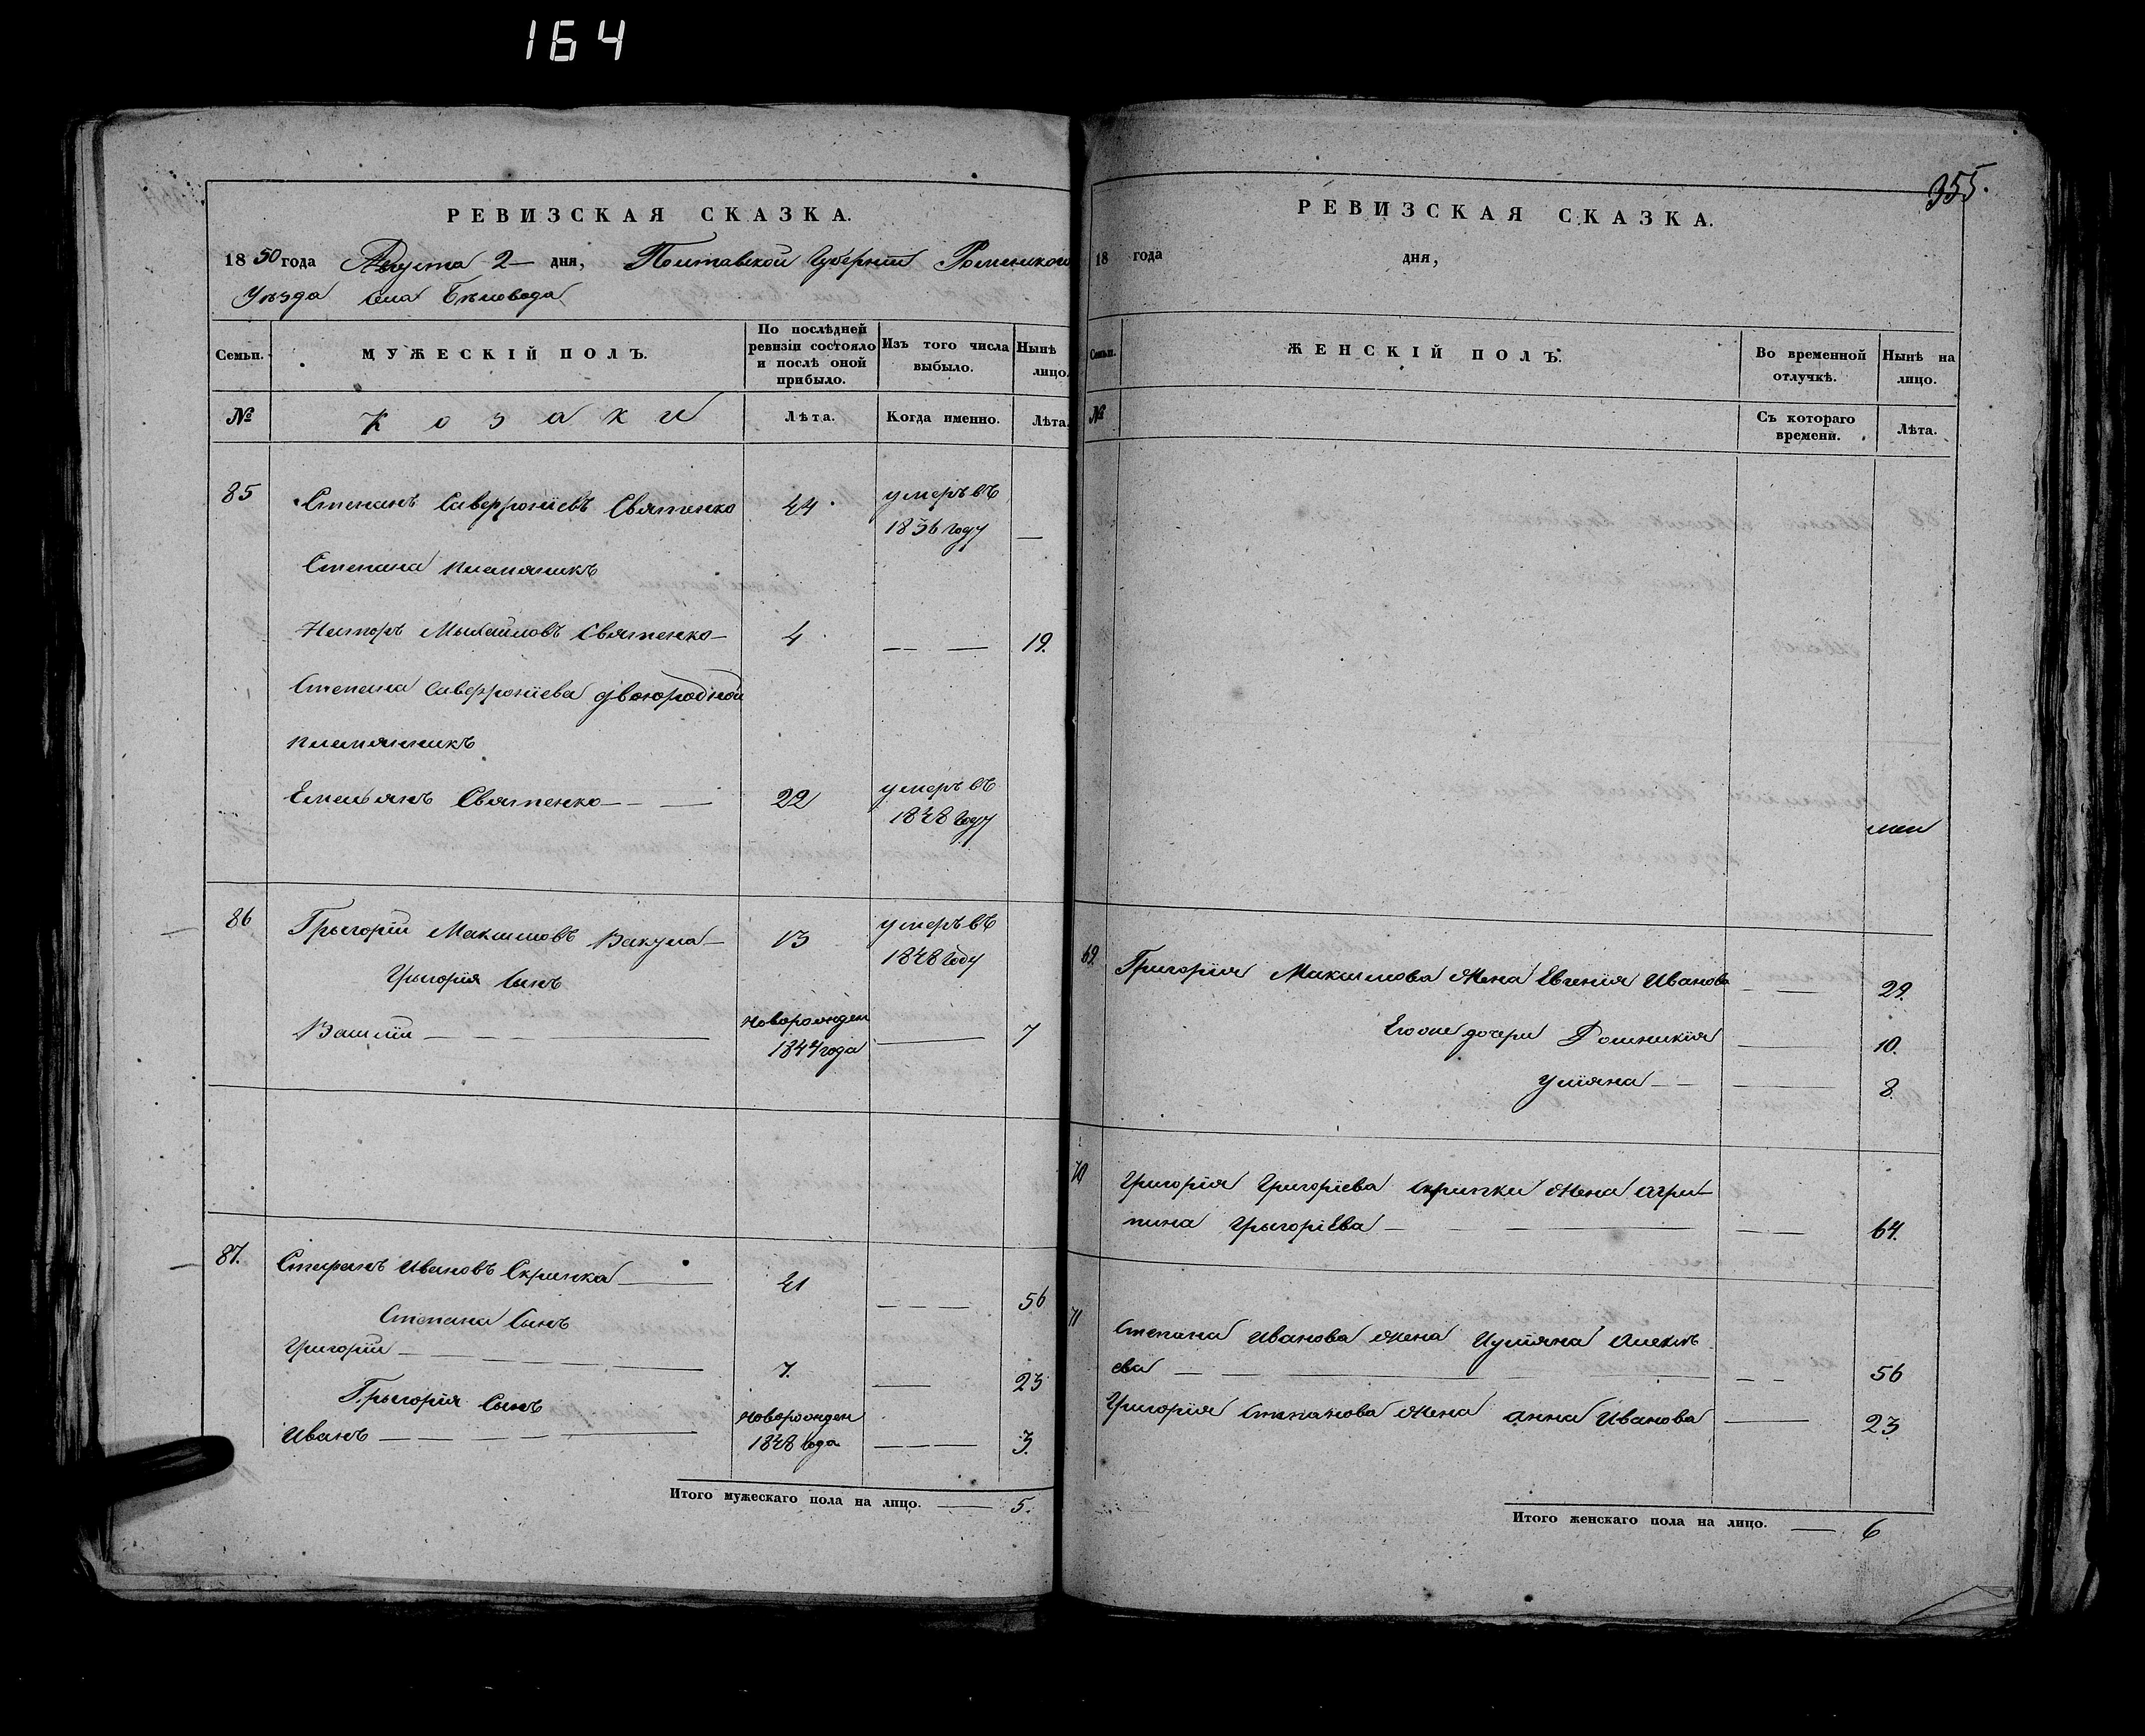 164
РЕВИЗСКАЯ СКАЗКА.
1850 года Августа 2 дня, Полтавской Губернии Роменского
Уѣзда села Бѣловода
Семьи.
МУЖЕСКІЙ ПОЛЪ.
По послѣдней ревизіи состояло и послѣ оной прибыло.
Изъ того числа выбыло.
Нынѣ лицо.
№
Козаки
Лѣта.
Когда именно.
Лѣта.
85 Степанъ Саверроніевъ Святенко 44 умеръ въ
1836 году —
Степана племяникъ
Несторъ Михайловъ Святенко — 4 — — 19.
Степана Саверроніева двоюродной
племянникъ
Емельянъ Святенко — — 22 умеръ въ
1848 году
86 Грыгорій Максимовъ Вакула — 13 умеръ въ
1848 году
Грыгорія Сынъ
Василій — — — новорожден
1844 года — 7
87. Стефанъ Ивановъ Скрипка — 41 — — — 56
Степана Сынъ
Григорій — — — 7. — 23
Грыгорія Сынъ
Иванъ — — — новорожден
1848 года — — — 3.
Итого мужескаго пола на лицо. — 5.
355.
РЕВИЗСКАЯ СКАЗКА.
18 года дня,
Семьи.
ЖЕНСКІЙ ПОЛЪ.
Во временной отлучкѣ.
Нынѣ на лицо.
№
Съ котораго времени.
Лѣта.
69 Григорія Максимова Жена Евгенія Иванова — — 29.
Его же дочери Домникія — 10.
Уліяна — — 8.
70 Григорія Григоріева Скрипки Жена Агри-
пина Грыгоріева — — 64.
71 Степана Иванова Жена Иуліяна Алексѣ
ева — — — 56
Григорія Степанова Жена Анна Иванова — 23
Итого женскаго пола на лицо. — 6